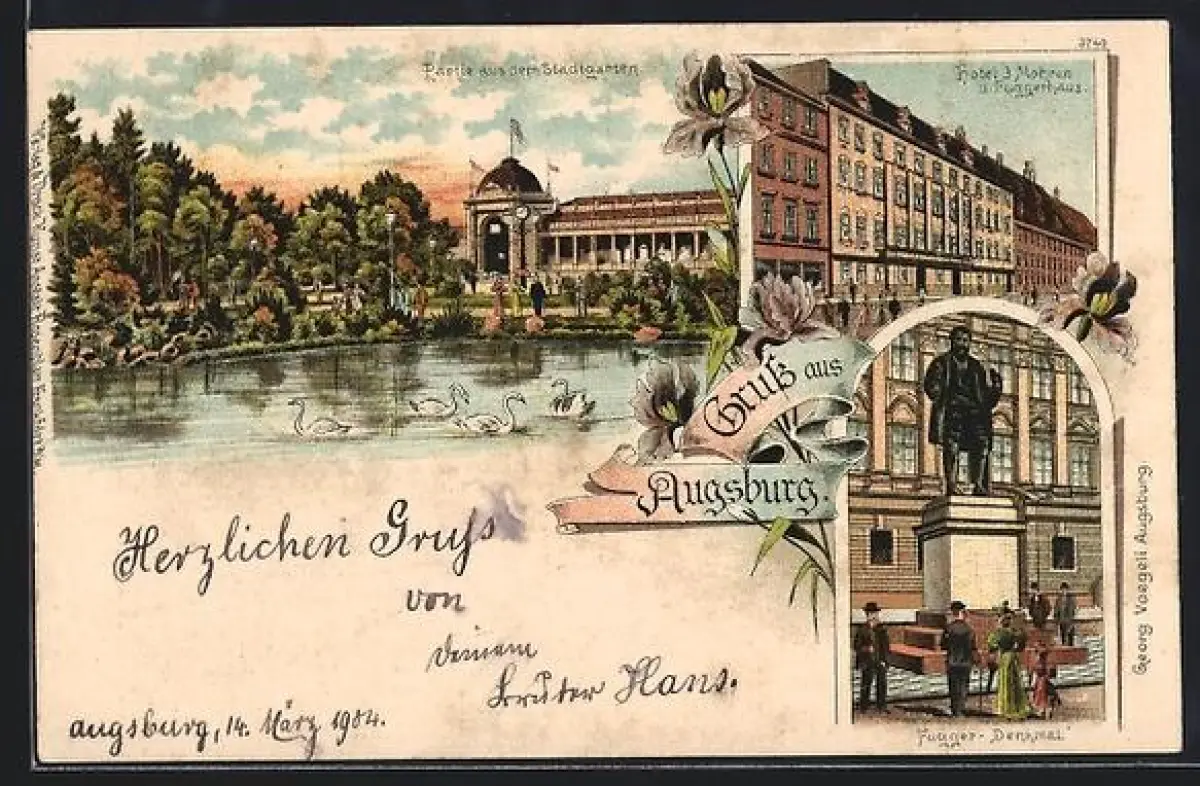 Partie aus dem Stadtgarten
3749
Hotel 3 Mohren
u. Fuggerhaus.
Gruß aus
Augsburg.
Herzlichen Gruß
von
deinem
Bruder Hans.
Augsburg, 14. März 1904.
Fugger-Denkmal
Georg Voegeli Augsburg